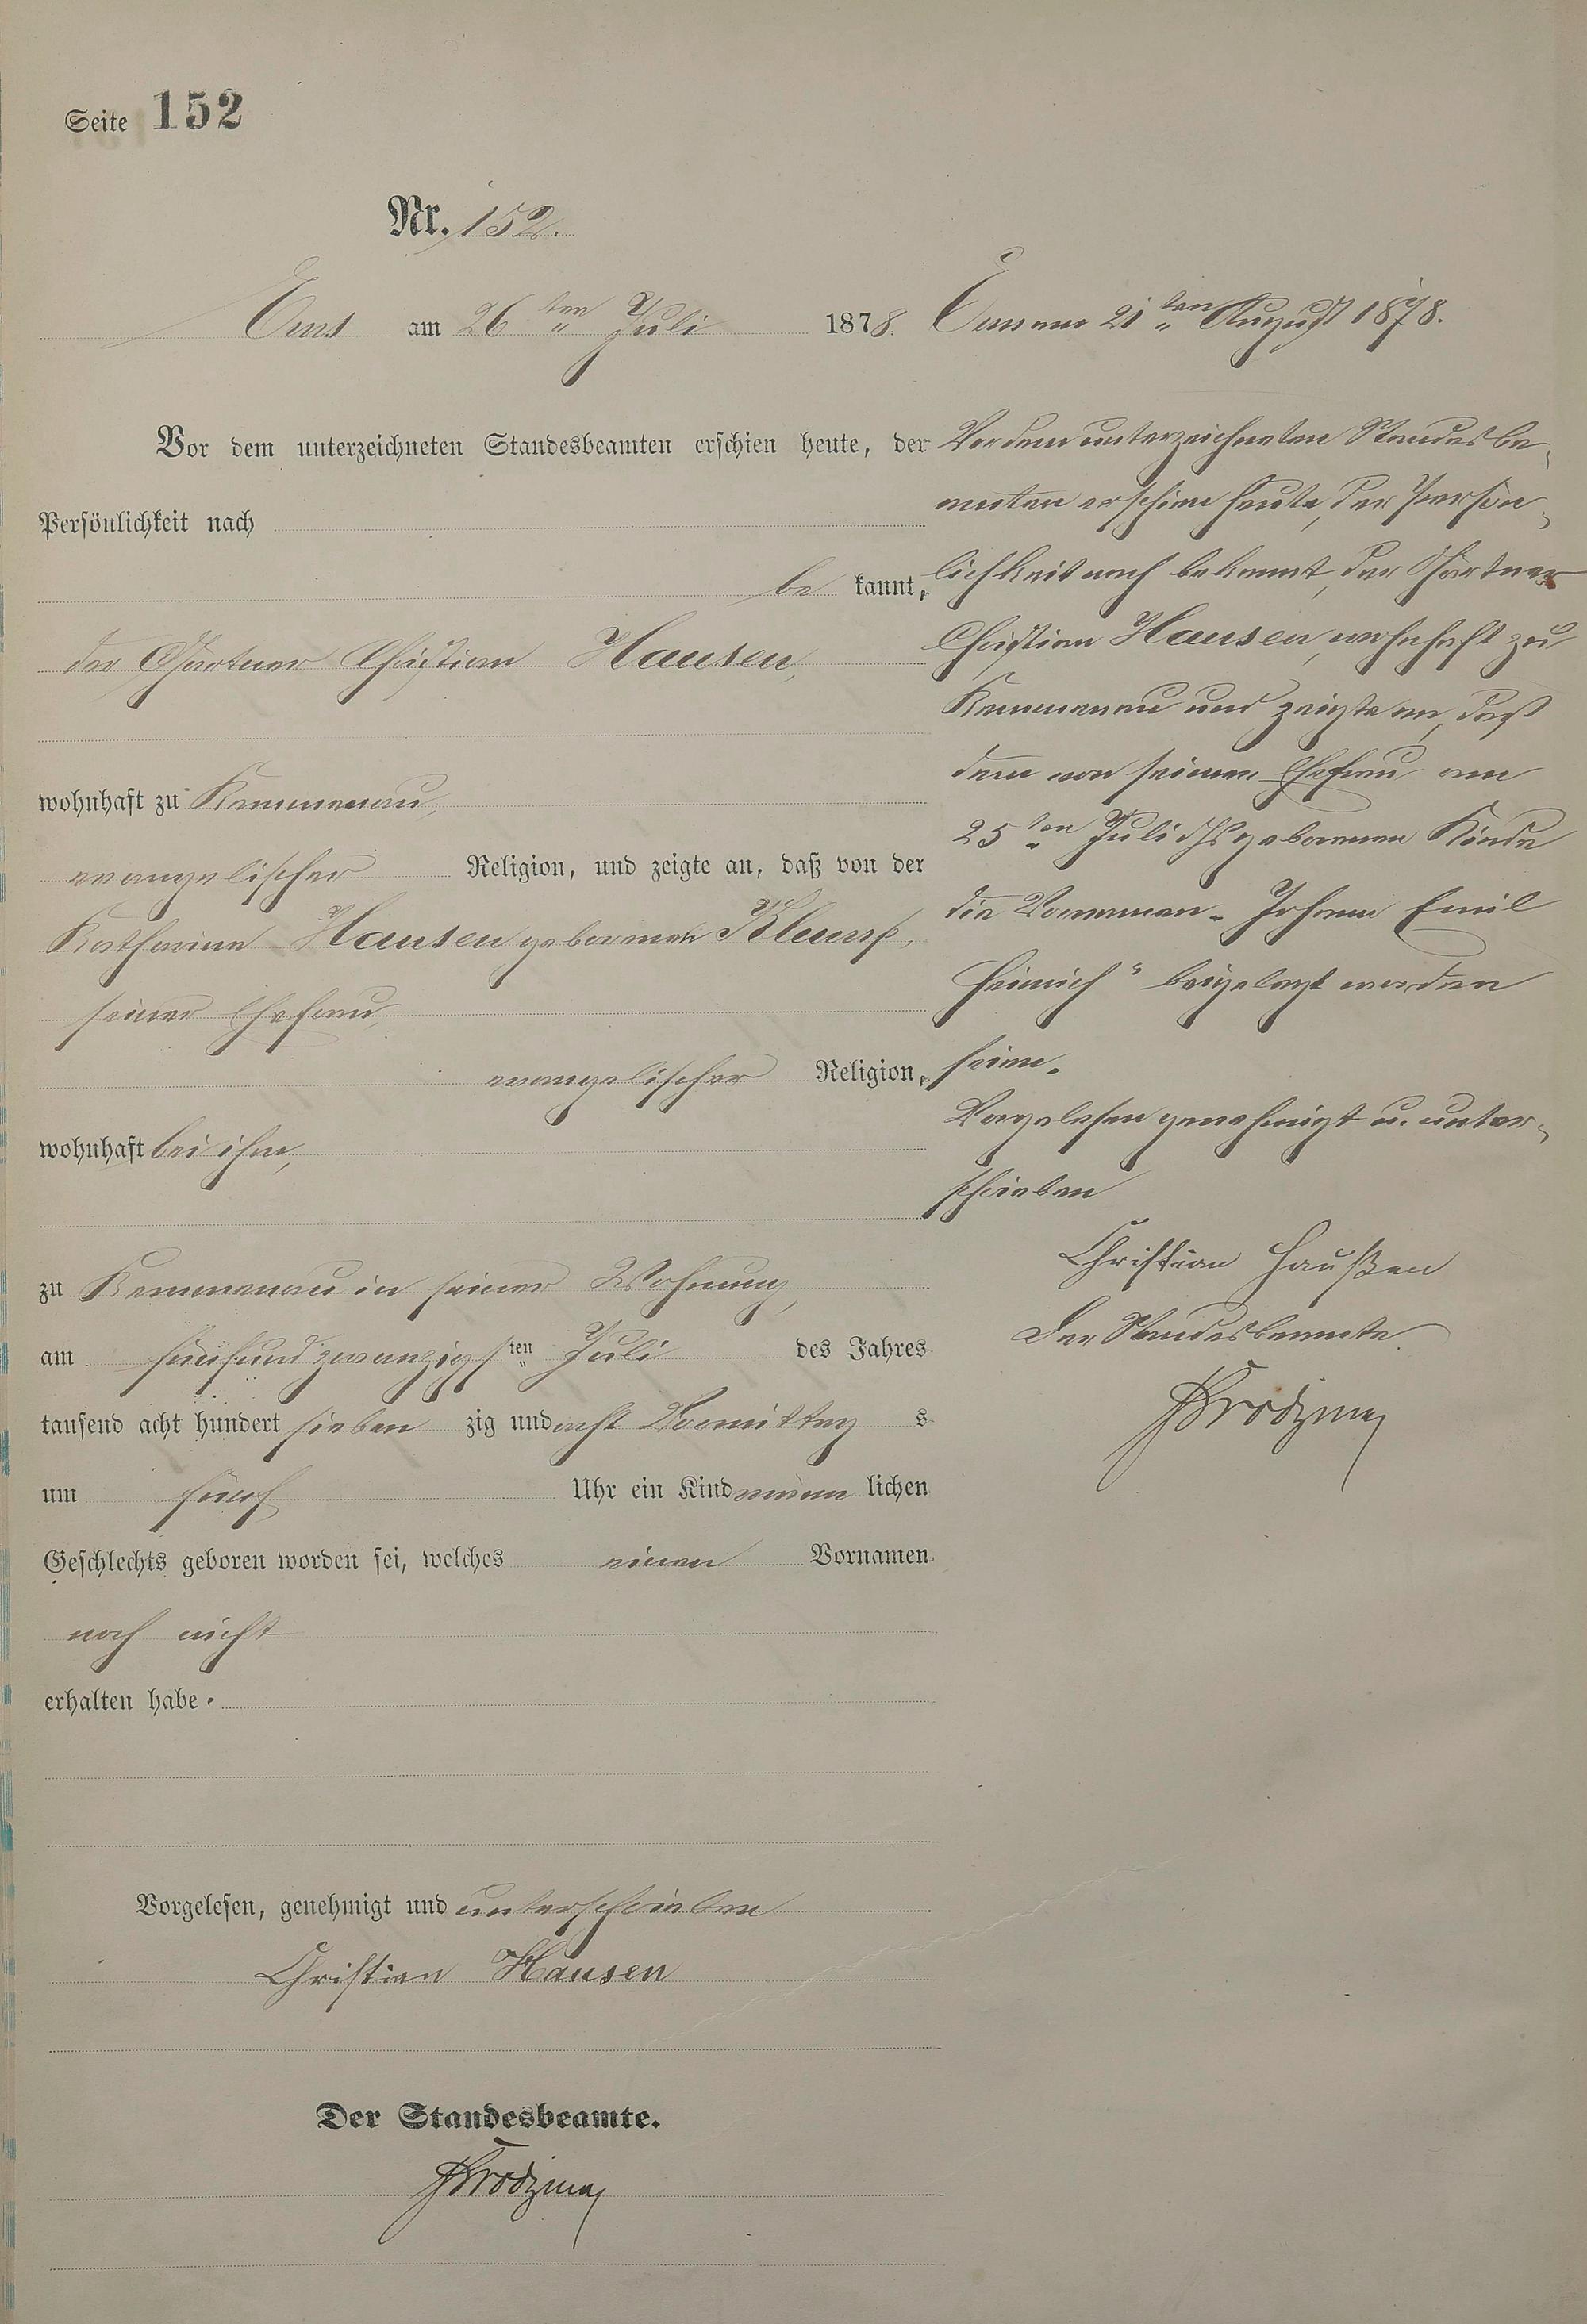 Seite 152
Nr. 152.
Ems am 26ten Juli 1878.
Vor dem unterzeichneten Standesbeamten erschien heute, der
Persönlichkeit nach
be kannt,
der Gärtner Christian Hausen,
wohnhaft zu Kemmenau,
evangelischer Religion, und zeigte an, daß von der
Katharina Hausen geborenen
seiner Ehefrau,
evangelischer Religion,
wohnhaft bei ihm,
zu Kemmenau in seiner Wohnung,
am fünfundzwanzigsten Juli des Jahres
tausend acht hundert sieben zig und acht Vormittag s
um fünf Uhr ein Kind männ lichen
Geschlechts geboren worden sei, welches einen Vornamen
noch nicht
erhalten habe.
Vorgelesen, genehmigt und unterschrieben
Christian Hausen
Der Standesbeamte.
Ems am 21ten August 1878.
Vor dem unterzeichneten Standesbe-
amten erschien heute, der Persön-
lichkeit nach bekannt, der Gärtner
Christian Hausen, wohnhaft zu
Kemmenau und zeigte an, daß
dem von seiner Ehefrau am
25ten Juli geborenen Kinde
die Vornamen „Johann Emil
Heinrich“ beigelegt worden
seien.
Vorgelesen genehmigt u. unter-
schrieben
Christian Haußen
Der Standesbeamte